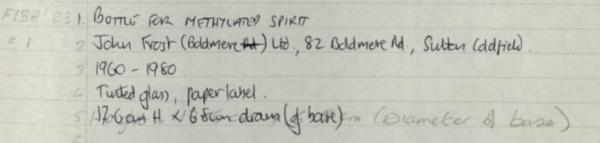 F138'83 1. BOTTLE FOR METHYLATED SPIRIT
= 1 2 John Frost (Boldmere) Ltd., 82 Boldmere Rd., Sutton Coldfield.
3 1960 - 1980
4 Tinted glass, paper label.
5 17.6cm H x 6.8cm diam (of base) (Diameter of base)
6